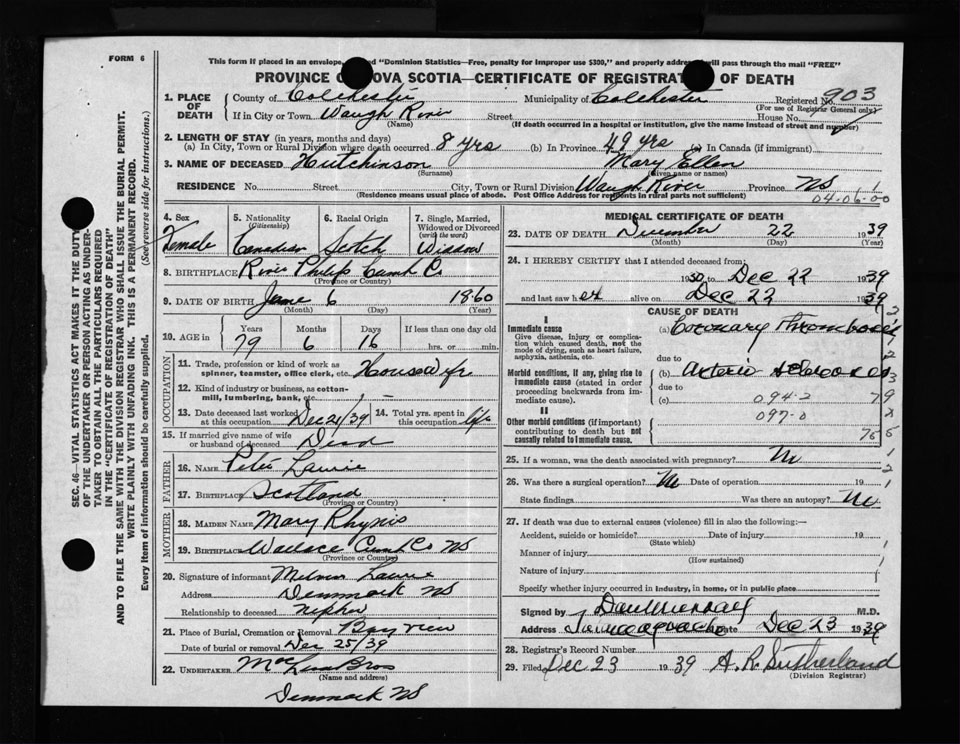 FORM 6
This form if placed in an envelope, and "Dominion Statistics—Free, penalty for improper use $300," and properly addressed will pass through the mail "FREE"
PROVINCE OF NOVA SCOTIA—CERTIFICATE OF REGISTRATION OF DEATH
1. PLACE OF DEATH
County of Colchester Municipality of Colchester Registered No. 903
(For use of Registrar General only)
If in City or Town Waugh River Street House No.
(Name) (If death occurred in a hospital or institution, give the name instead of street and number)
2. LENGTH OF STAY (in years, months and days)
(a) In City, Town or Rural Division where death occurred 8 yrs (b) In Province 49 yrs (c) In Canada (if immigrant)
3. NAME OF DECEASED Hutchinson Mary Ellen
(Surname) (Given name or names)
RESIDENCE No. Street City, Town or Rural Division Waugh River Province NS
(Residence means usual place of abode. Post Office Address for residents in rural parts not sufficient) 04-06-00
4. Sex Female
5. Nationality (Citizenship) Canadian
6. Racial Origin Scotch
7. Single, Married, Widowed or Divorced (write the word) Widow
8. BIRTHPLACE River Philip Cumb Co
(Province or Country)
9. DATE OF BIRTH June 6 1860
(Month) (Day) (Year)
10. AGE in Years Months Days If less than one day old
79 6 16 hrs. or min.
OCCUPATION
11. Trade, profession or kind of work as spinner, teamster, office clerk, etc. Housewife
12. Kind of industry or business, as cotton-mill, lumbering, bank, etc.
13. Date deceased last worked at this occupation Dec 21/39 14. Total yrs. spent in this occupation life
15. If married give name of wife or husband of deceased Dead
FATHER
16. NAME Peter Laurie
17. BIRTHPLACE Scotland
(Province or Country)
MOTHER
18. MAIDEN NAME Mary
19. BIRTHPLACE Wallace Cumb Co NS
(Province or Country)
20. Signature of informant Melvin Laurie
Address Denmark NS
Relationship to deceased nephew
21. Place of Burial, Cremation or Removal Bayview
Date of burial or removal Dec 25/39
22. UNDERTAKER Bros
(Name and address)
Denmark NS
MEDICAL CERTIFICATE OF DEATH
23. DATE OF DEATH December 22 1939
(Month) (Day) (Year)
24. I HEREBY CERTIFY that I attended deceased from:
1930 to Dec 22 1939
and last saw her alive on Dec 22 1939
CAUSE OF DEATH
I
Immediate cause (a) Coronary Thrombosis
Give disease, injury or complication which caused death, not the mode of dying, such as heart failure, asphyxia, asthenia, etc.
due to
Morbid conditions, if any, giving rise to immediate cause (stated in order proceeding backwards from immediate cause). (b) Arterio sclerosis
due to
(c) 094-2 79
II
097-0
Other morbid conditions (if important) contributing to death but not causally related to immediate cause.
25. If a woman, was the death associated with pregnancy? No
26. Was there a surgical operation? No Date of operation 19
State findings Was there an autopsy? No
27. If death was due to external causes (violence) fill in also the following:—
Accident, suicide or homicide? Date of injury 19
(State which)
Manner of injury
(How sustained)
Nature of injury
Specify whether injury occurred in industry, in home, or in public place
Signed by Dan Murray M.D.
Address Tatamagouche Date Dec 23 1939
28. Registrar's Record Number
29. Filed Dec 23 1939 A. R. Sutherland
(Division Registrar)
SEC. 46—VITAL STATISTICS ACT MAKES IT THE DUTY OF THE UNDERTAKER OR PERSON ACTING AS UNDERTAKER TO OBTAIN ALL THE PARTICULARS REQUIRED IN THE "CERTIFICATE OF REGISTRATION OF DEATH" AND TO FILE THE SAME WITH THE DIVISION REGISTRAR WHO SHALL ISSUE THE BURIAL PERMIT.
WRITE PLAINLY WITH UNFADING INK. THIS IS A PERMANENT RECORD.
Every item of information should be carefully supplied. (See reverse side for instructions.)